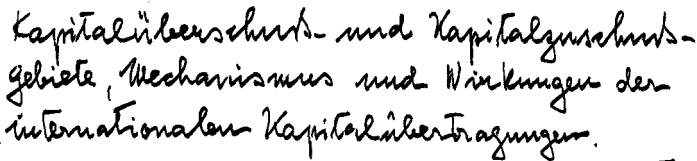 Kapitalüberschuß- und Kapitalzuschuß-
gebiete, Mechanismus und Wirkungen der
internationalen Kapitalübertragungen.